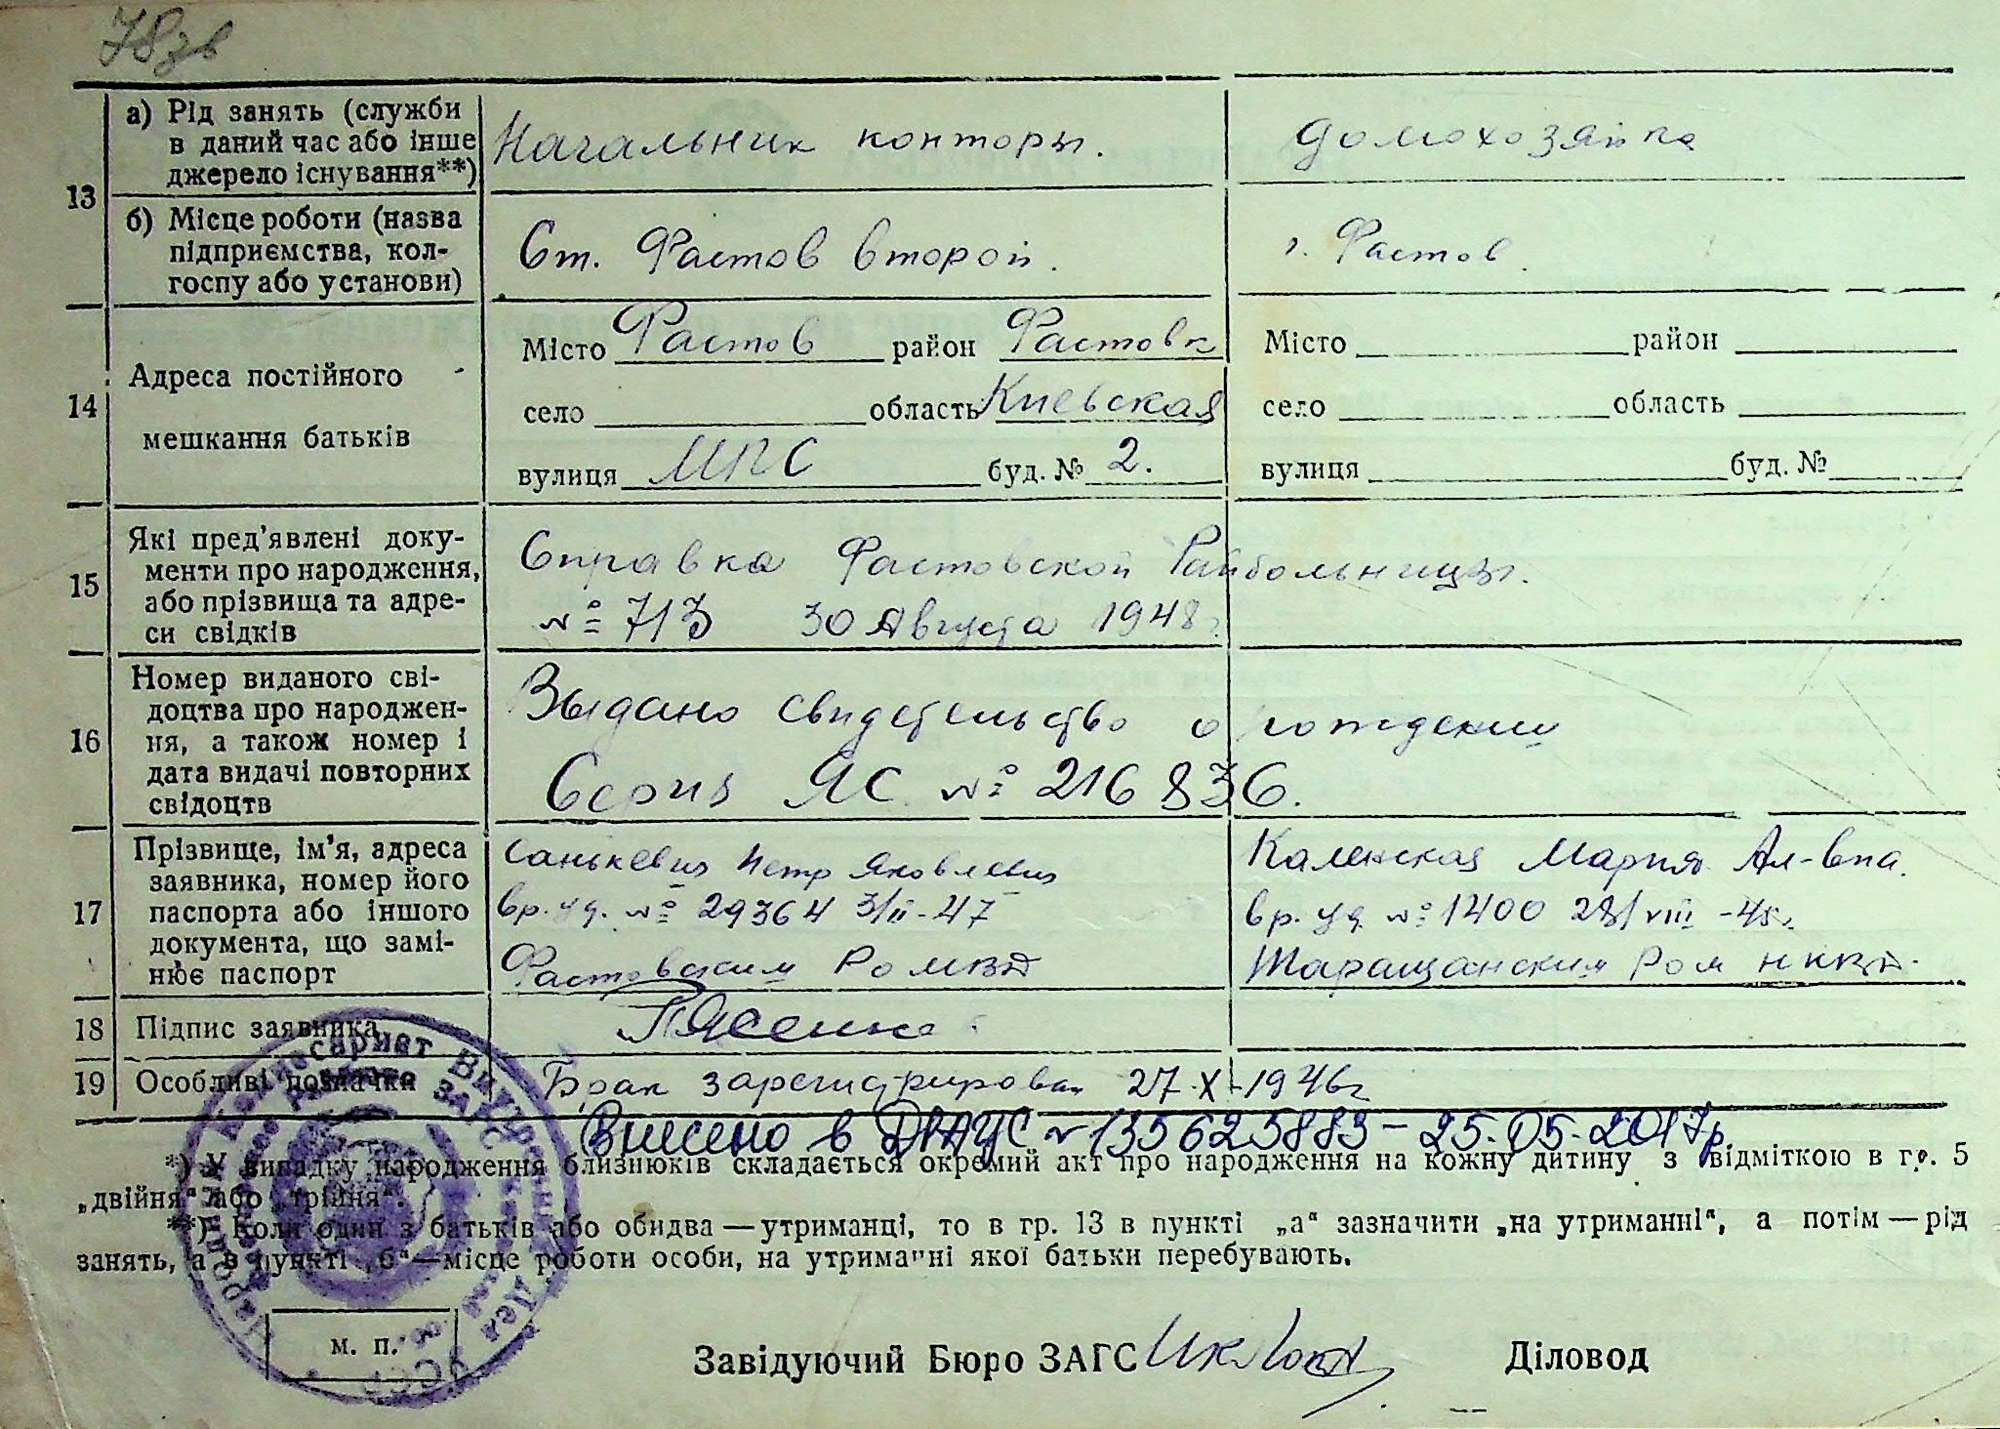 78зв
13
а) Рід занять (служби
в даний час або інше
джерело існування**)
Начальник конторы.
домохозяйка
б) Місце роботи (назва
підприємства, кол-
госпу або установи)
Ст. Фастов второй.
г. Фастов.
14
Адреса постійного
мешкання батьків
Місто Фастов район Фастовск
село область Киевская
вулиця МПС буд. № 2.
Місто район
село область
вулиця буд. №
15
Які пред'явлені доку-
менти про народження,
або прізвища та адре-
си свідків
Справка Фастовской Райбольницы.
№ 713 30 Августа 1948г.
16
Номер виданого сві-
доцтва про народжен-
ня, а також номер і
дата видачі повторних
свідоцтв
Выдано свидетельство о рождении
Серия ЯС № 216836.
17
Прізвище, ім'я, адреса
заявника, номер його
паспорта або іншого
документа, що замі-
нює паспорт
Санькевич Петр Яковлевич
вр. уд. № 29364 3/II-47
Фастовским РОМВД
Каленская Мария Ал-вна.
вр. уд. № 1400 28/VIII-45г.
Таращанским Ром НКВД.
18
Підпис заявника
19
Особливі позначки
Брак зарегистрирован 27-X-1946г
Внесено в ДРАЦС № 135625883 – 25.05.2017р
*) У випадку народження близнюків складається окремий акт про народження на кожну дитину з відміткою в гр. 5
„двійня“ або „трійня“.
**) Коли один з батьків або обидва — утриманці, то в гр. 13 в пункті „а“ зазначити „на утриманні“, а потім — рід
занять, а в пункті „б“ — місце роботи особи, на утриманні якої батьки перебувають.
м. п.
Завідуючий Бюро ЗАГС
Діловод